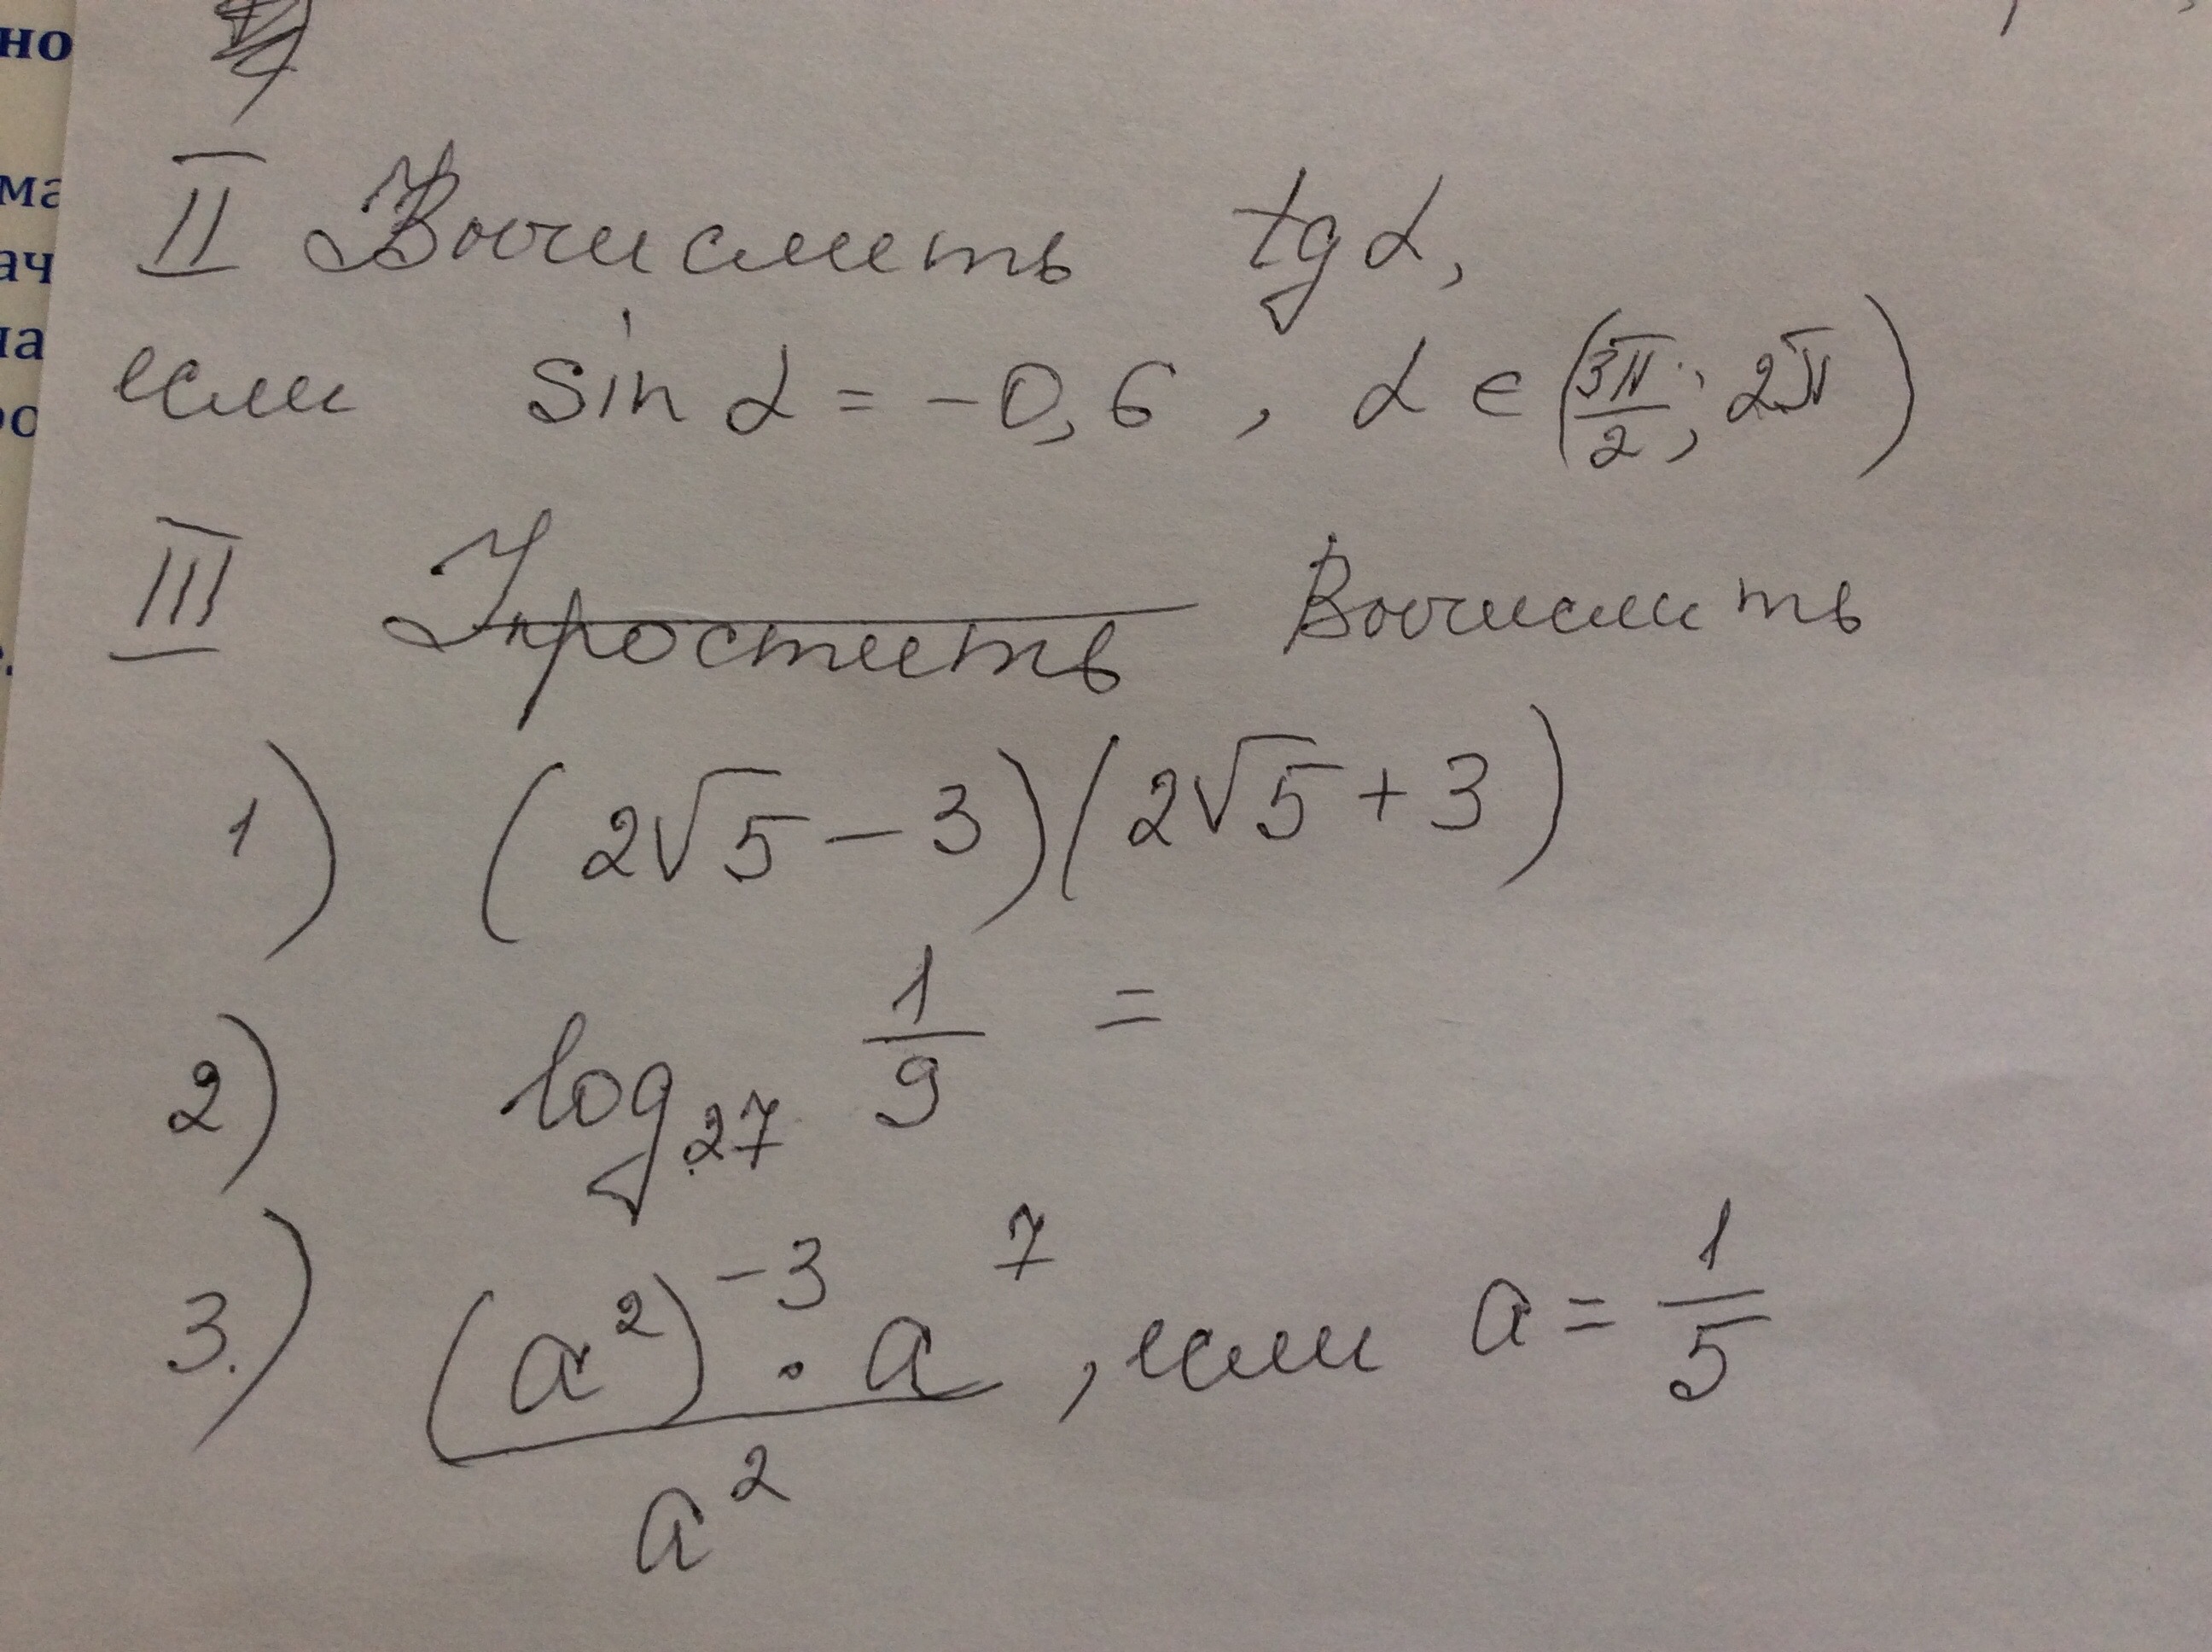 но
ма
ач
II Вычислить tg α,
если sin α = -0,6 , α ∈ (3π/2 ; 2π)
III Упростить Вычислить
1) (2√5 - 3)(2√5 + 3)
2) log₂₇ 1/9 =
3.) (a²)⁻³ · a⁷ / a² , если a = 1/5